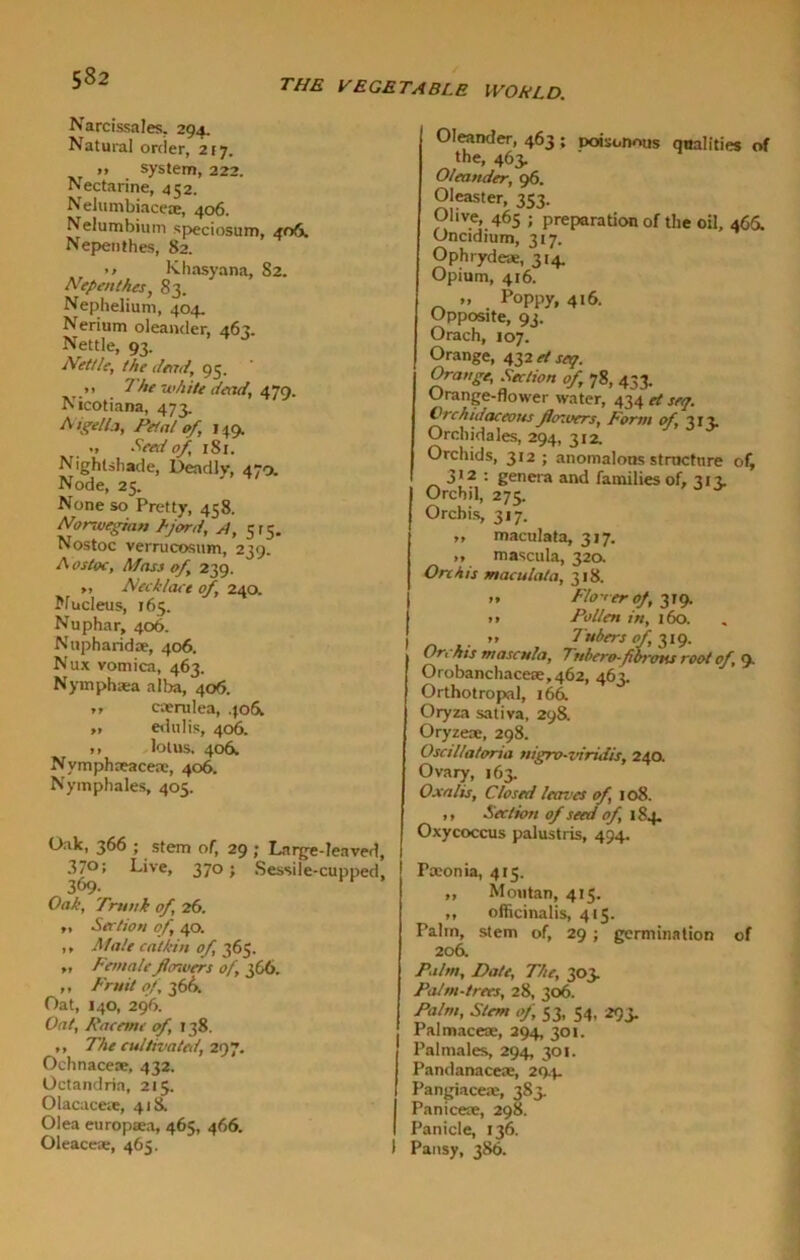 582
THE VEGETABLE WORLD.
Narcissales, 294.
Natural order, 217.
,, system, 222.
Nectarine, 452.
Nelumbiaceæ, 406.
Nelumbium speciosum, 406.
Nepenthes, 82.
,, Khasyana, 82.
Nepenthes, 83.
Nephelium, 404.
Nerium oleander, 463.
Nettle, 93.
Nettle, the dead, 95.
,, The white dead, 479.
Nicotiana, 473.
Nigella, Petal of, 149.
,, Seed of, 181.
Nightshade, Deadly, 470.
Node, 25.
None so Pretty, 458.
Norwegian Fjord, A, 515.
Nostoc verrucosum, 239.
Nostoc, Mass of, 239.
,, Necklace of, 240.
Nucleus, 165.
Nuphar, 406.
Nupharidæ, 406.
Nux vomica, 463.
Nymphæa alba, 406.
,, cærulea, 406.
,, edulis, 406.
,, lotus, 406.
Nymphæaceæ, 406.
Nymphales, 405.
Oak, 366 ; stem of, 29 ; Large-leaved,
370; Live, 370 ; Sessile-cupped,
369.
Oak, Trunk of, 26.
,, Section of, 40.
,, Male catkin of, 365.
,, Female flowers of, 366.
,, Fruit of, 366.
Oat, 140, 296.
Oat, Raceme of, 138.
,, The cultivated, 297.
Ochnaceæ, 432.
Octandria, 215.
Olacaceæ, 418.
Olea europæa, 465, 466.
Oleaceæ, 465.
Oleander, 463 ; poisonous qualities of
the, 463.
Oleander, 96.
Oleaster, 353.
Olive, 465 ; preparation of the oil, 466.
Oncidium, 317.
Ophrydeæ, 314.
Opium, 416.
,, Poppy, 416.
Opposite, 93.
Orach, 107.
Orange, 432 et seq.
Orange, Section of, 78, 433.
Orange-flower water, 434 et seq.
Orchidaceous flowers, Form of, 313.
Orchidales, 294, 312.
Orchids, 312 ; anomalous structure of,
312 : genera and families of, 313.
Orchil, 275.
Orchis, 317.
,, maculata, 317.
,, mascula, 320.
Orchis maculata, 318.
,, Flower of, 319.
,, Pollen in, 160.
,, Tubers of, 319.
Orchis mascula, Tubero-fibrous root of, 9.
Orobanchaceæ, 462, 463.
Orthotropal, 166.
Oryza sativa, 298.
Oryzeæ, 298.
Oscillatoria nigro-viridis, 240.
Ovary, 163.
Oxalis, Closed leaves of, 108.
,, Section of seed of, 184.
Oxycoccus palustris, 494.
Pæonia, 415.
,, Moutan, 415.
,, officinalis, 415.
Palm, stem of, 29 ; germination of
206.
Palm, Date, The, 303.
Palm-trees, 28, 306.
Palm, Stem of, 53, 54, 293.
Palmaceæ, 294, 301.
Palmales, 294, 301.
Pandanaceæ, 294.
Pangiaceæ, 383.
Paniceæ, 298.
Panicle, 136.
Pansy, 386.